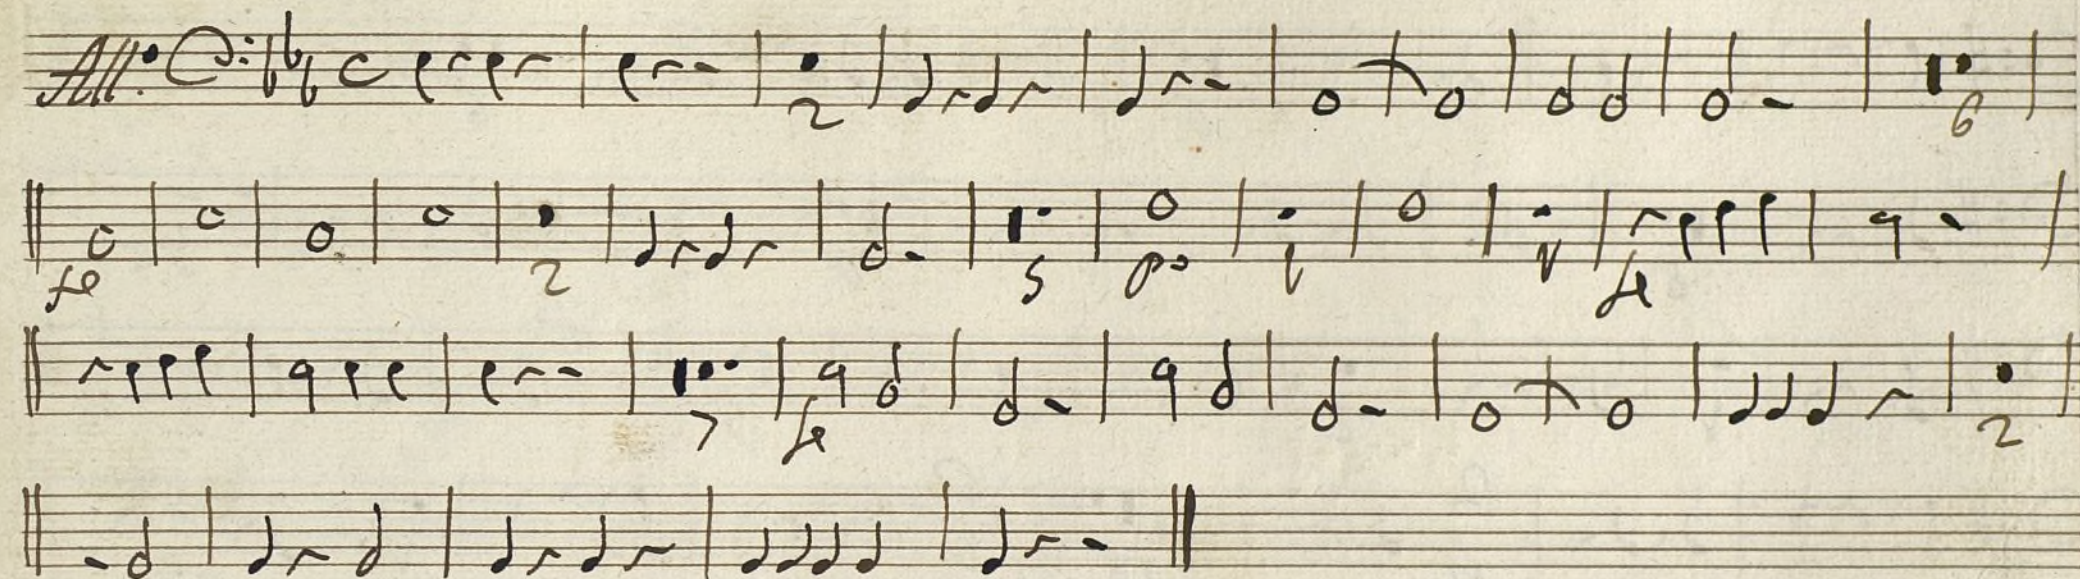 All:º C
2 6
fe 2 5 pº 1 1 fe
7 fe 2